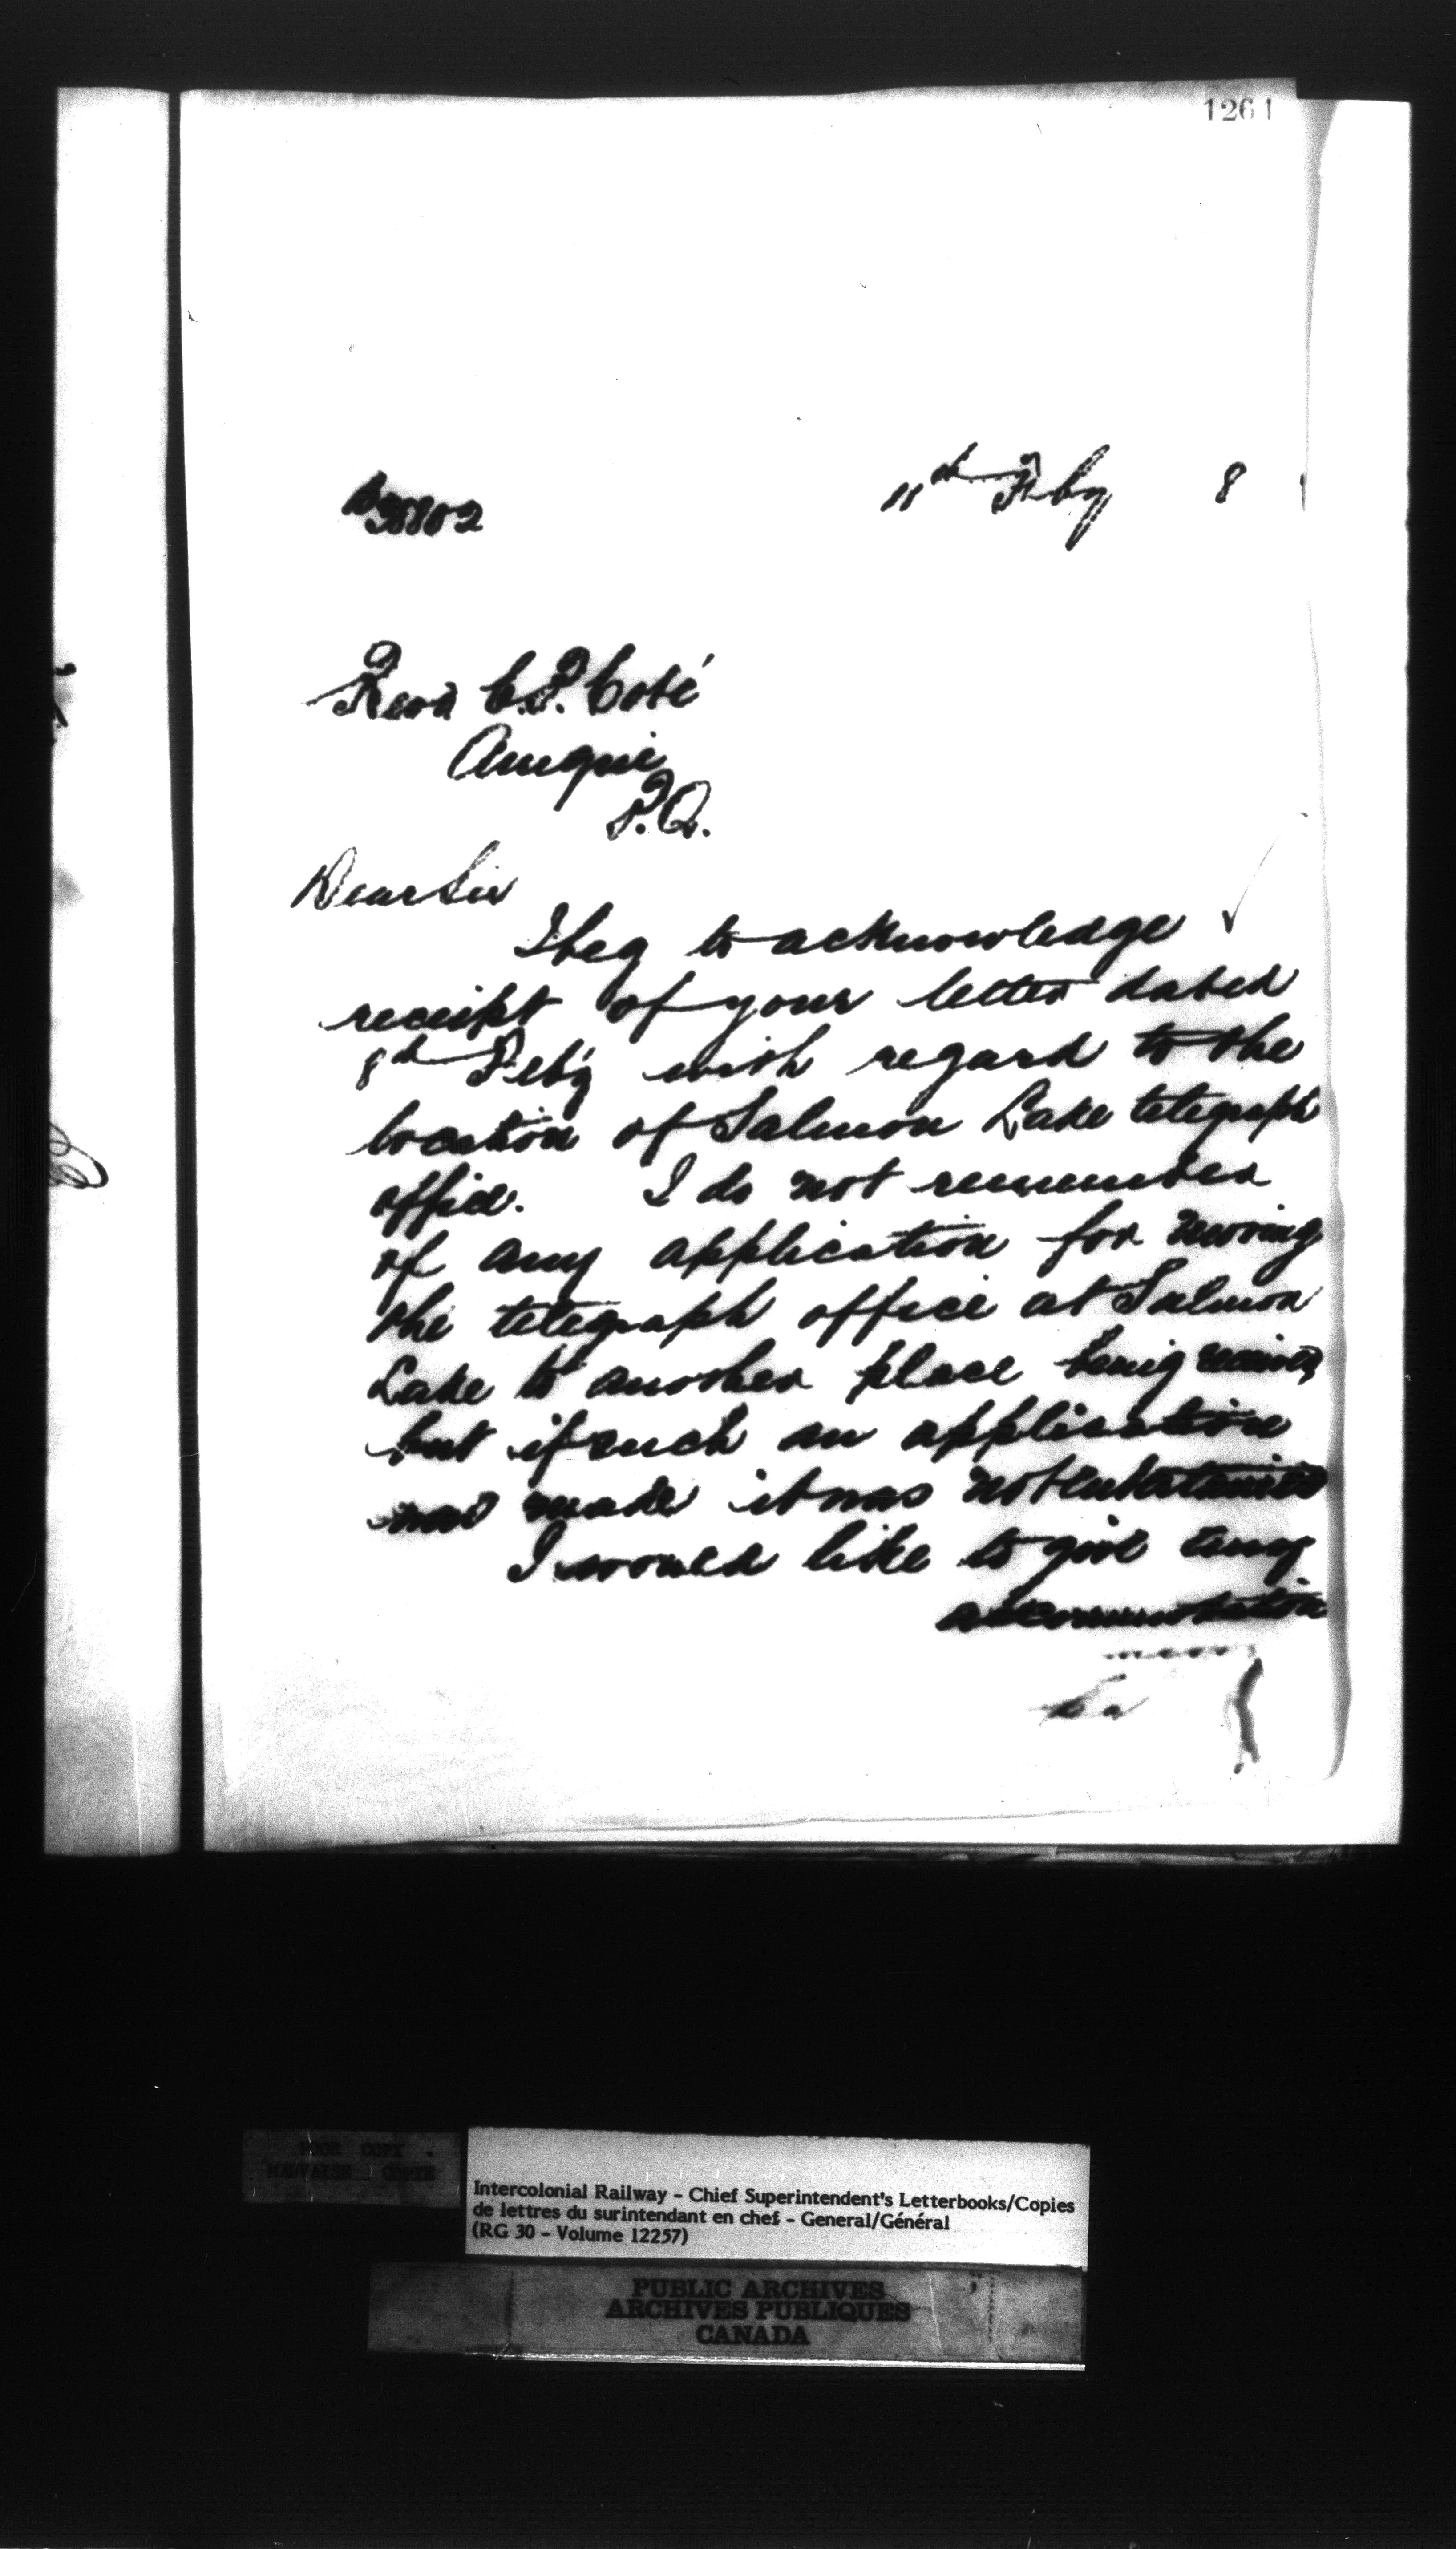 1261
11th Feby 8
Revd C.P. Coté
Amqui
P.Q.
Dear Sir
I beg to acknowledge
receipt of your letter dated
8th Feby with regard to the
location of Salmon Lake telegraph
office. I do not remember
of any application for moving
the telegraph office at Salmon
Lake to another place being received
but if such an application
was made it was not entertained
I would like to give every
accommodation
POOR COPY
MAUVAISE COPIE
Intercolonial Railway - Chief Superintendent's Letterbooks/Copies
de lettres du surintendant en chef - General/Général
(RG 30 - Volume 12257)
PUBLIC ARCHIVES
ARCHIVES PUBLIQUES
CANADA